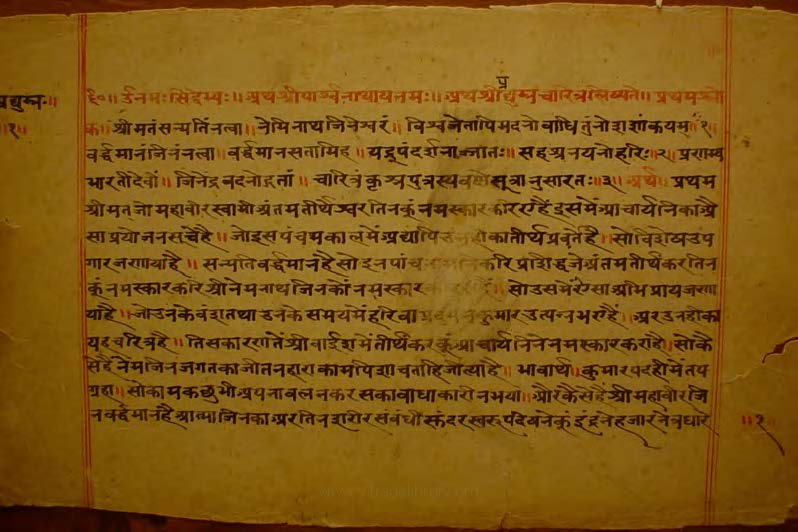 प्रद्युम्न॰॥
॥१॥
प्र
६०॥ ॐनमःसिद्धेभ्यः॥ अथश्रीपार्श्वनाथायनमः॥ अथश्रीद्युम्नचारित्रलिख्यते॥ प्रथमश्लो
क॥ श्रीमतंसन्मतिंनत्वा॥ नेमिनाथंजिनेश्वरं॥ विश्वजेतापिमदनोबाधितुंनोशशांकयम्॥१॥
वर्द्धमानंजिनंनत्वा॥ वर्द्धमानंसतामिह॥ यद्रूपंदर्शनाज्जातः॥ सहश्रनयनोहरिः॥२॥ प्रणम्य
भारतींदेवीं॥ जिनेंद्रवदनोद्गतां॥ चारित्रंकृश्नपुत्रस्यवक्ष्येसूत्रानुसारतः॥३॥ अर्थ॥ प्रथम
श्रीमतजोमहावीरस्वामीअंतमतीर्थेश्वरतिनकूंनमस्कारकरिएहैं इसमेंआचार्यनिकाअै
साप्रयोजनसंचेहै॥ जोइसपंचमकालमेंअद्यापिउनहीकातीर्थप्रवर्तेहै॥ सोविशेषउप
गारजरणयाहै॥ सन्मतिवर्द्धमानहै अंतमतीर्थंकरतिन
कूंनमस्कारकरिश्रीनेमनाथजिनकोंनमस्कार सोउसमेंऐसाअभिप्रायजरण
याहै॥ जोउनकेवंशतथाउनकेसमयमें कुमारउत्पन्नभएहैं॥ अरउनहीका
यहचरित्रहै॥ तिसकारणतेंश्रीवाईशमेंतीर्थंकरकूंआचार्यनिनेनमस्कारकराहै॥ सोकै
सेहैंनेमजिनजगतकाजीतनहाराकामपिशाचताहिजीत्याहै॥ भावार्थ॥ कुमारपदहीमेंतप
ग्रहा॥ सोकामकछुभीअपनाबलनकरसकाबाधाकारीनभया॥ औरकैसेहैंश्रीमहावीरजि
नवर्द्धमानहैआत्माजिनकाअरतिनशरीरसंबंधीसुंदरस्वरूपदेखनेकूंइंद्रनेहजारनेत्रधारे
॥१॥